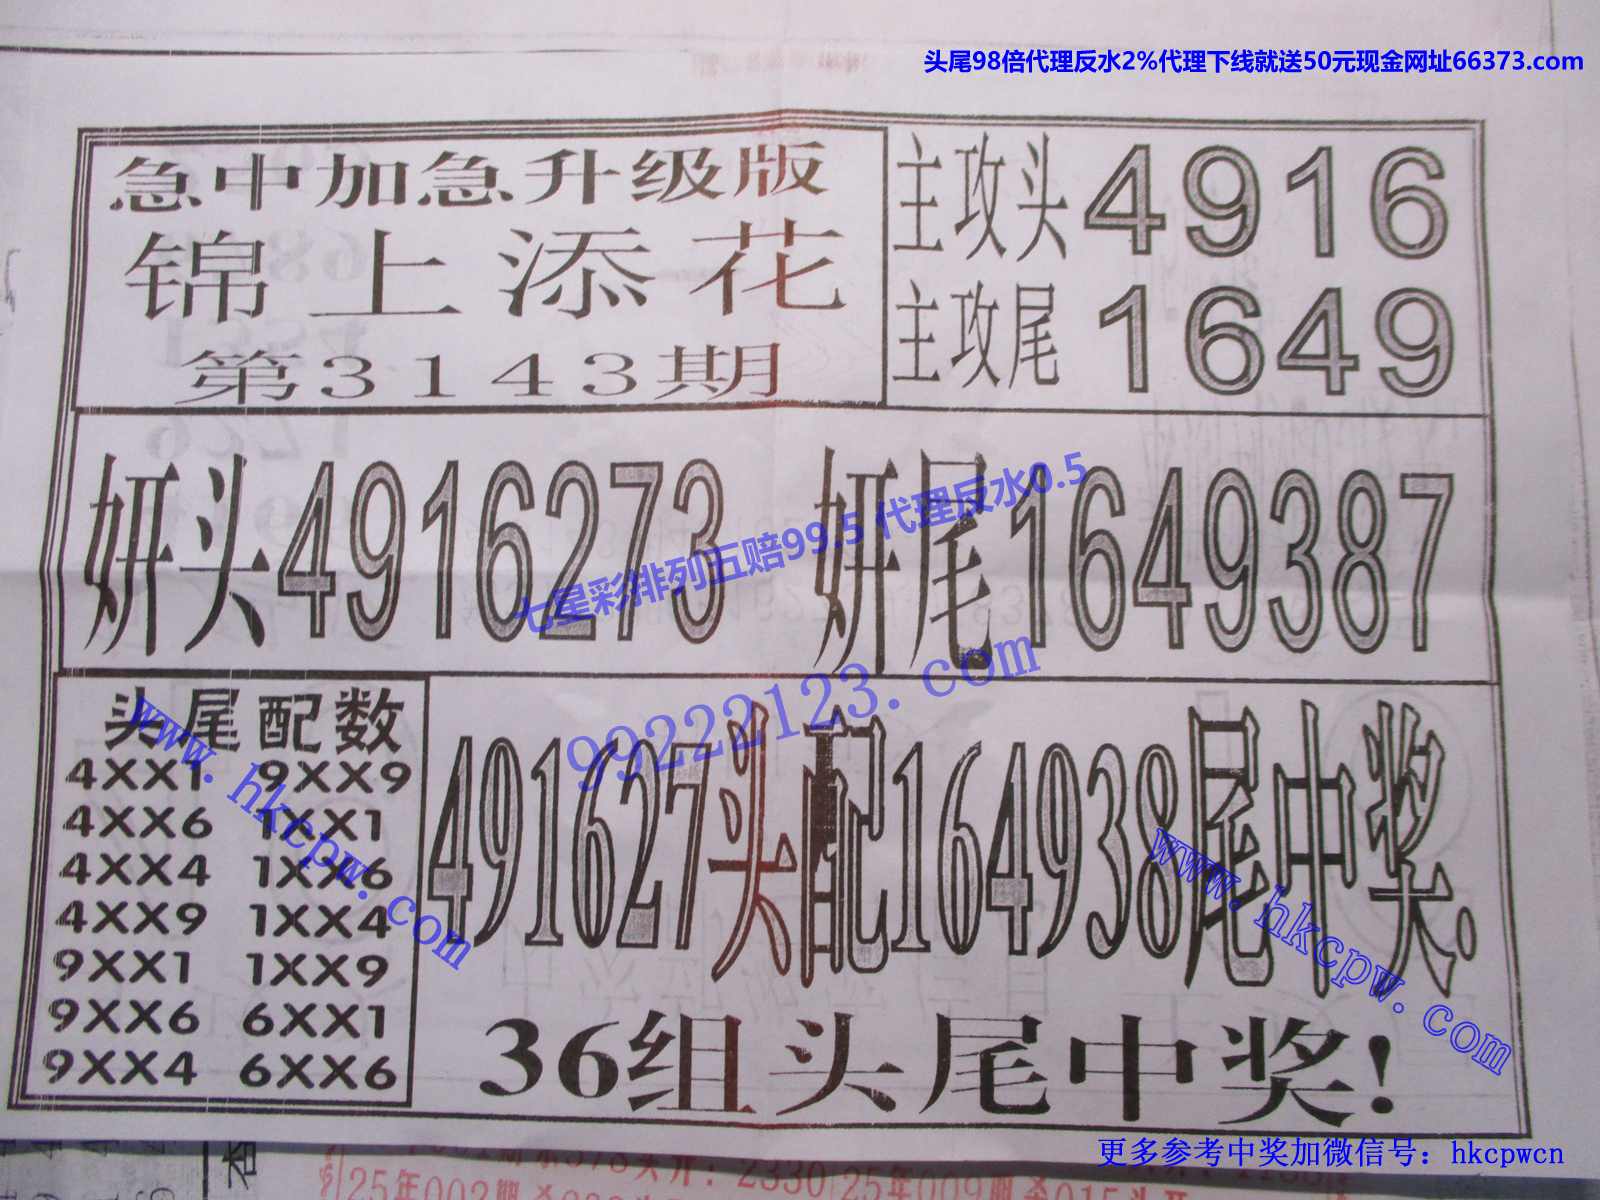 头尾98倍代理反水2%代理下线就送50元现金网址66373.com
急中加急升级版
锦上添花
第3143期
主攻头4916
主攻尾1649
妍头4916273 妍尾1649387
七星彩排列五赔99.5 代理反水0.5
99222123.com
头尾配数
4XX1 9XX9
4XX6 1XX1
4XX4 1XX6
4XX9 1XX4
9XX1 1XX9
9XX6 6XX1
9XX4 6XX6
www.hkcpw.com
491627头配164938尾中奖.
www.hkcpw.com
36组头尾中奖!
更多参考中奖加微信号：hkcpwcn